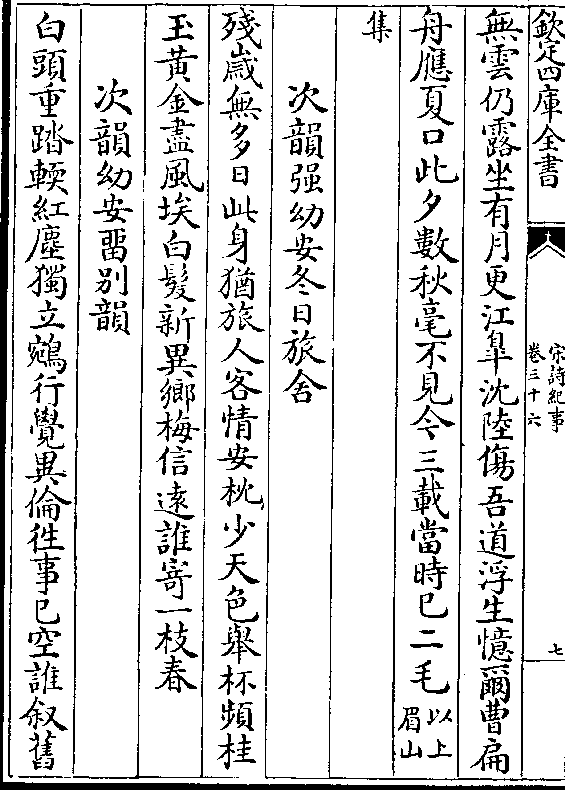 欽定四庫全書
宋詩紀事
卷三十六
七
無雲仍露坐有月更江臯沈陸傷吾道浮生憶爾曹扁
舟應夏口此夕數秋毫不見今三載當時已二毛以上眉山
集
次韻强幼安冬日旅舍
殘歲無多日此身猶旅人客情安枕少天色舉杯頻桂
玉黄金盡風埃白髮新異鄉梅信遠誰寄一枝春
次韻幼安畱别韻
白頭重踏輭紅塵獨立鵷行覺異倫徃事已空誰叙舊